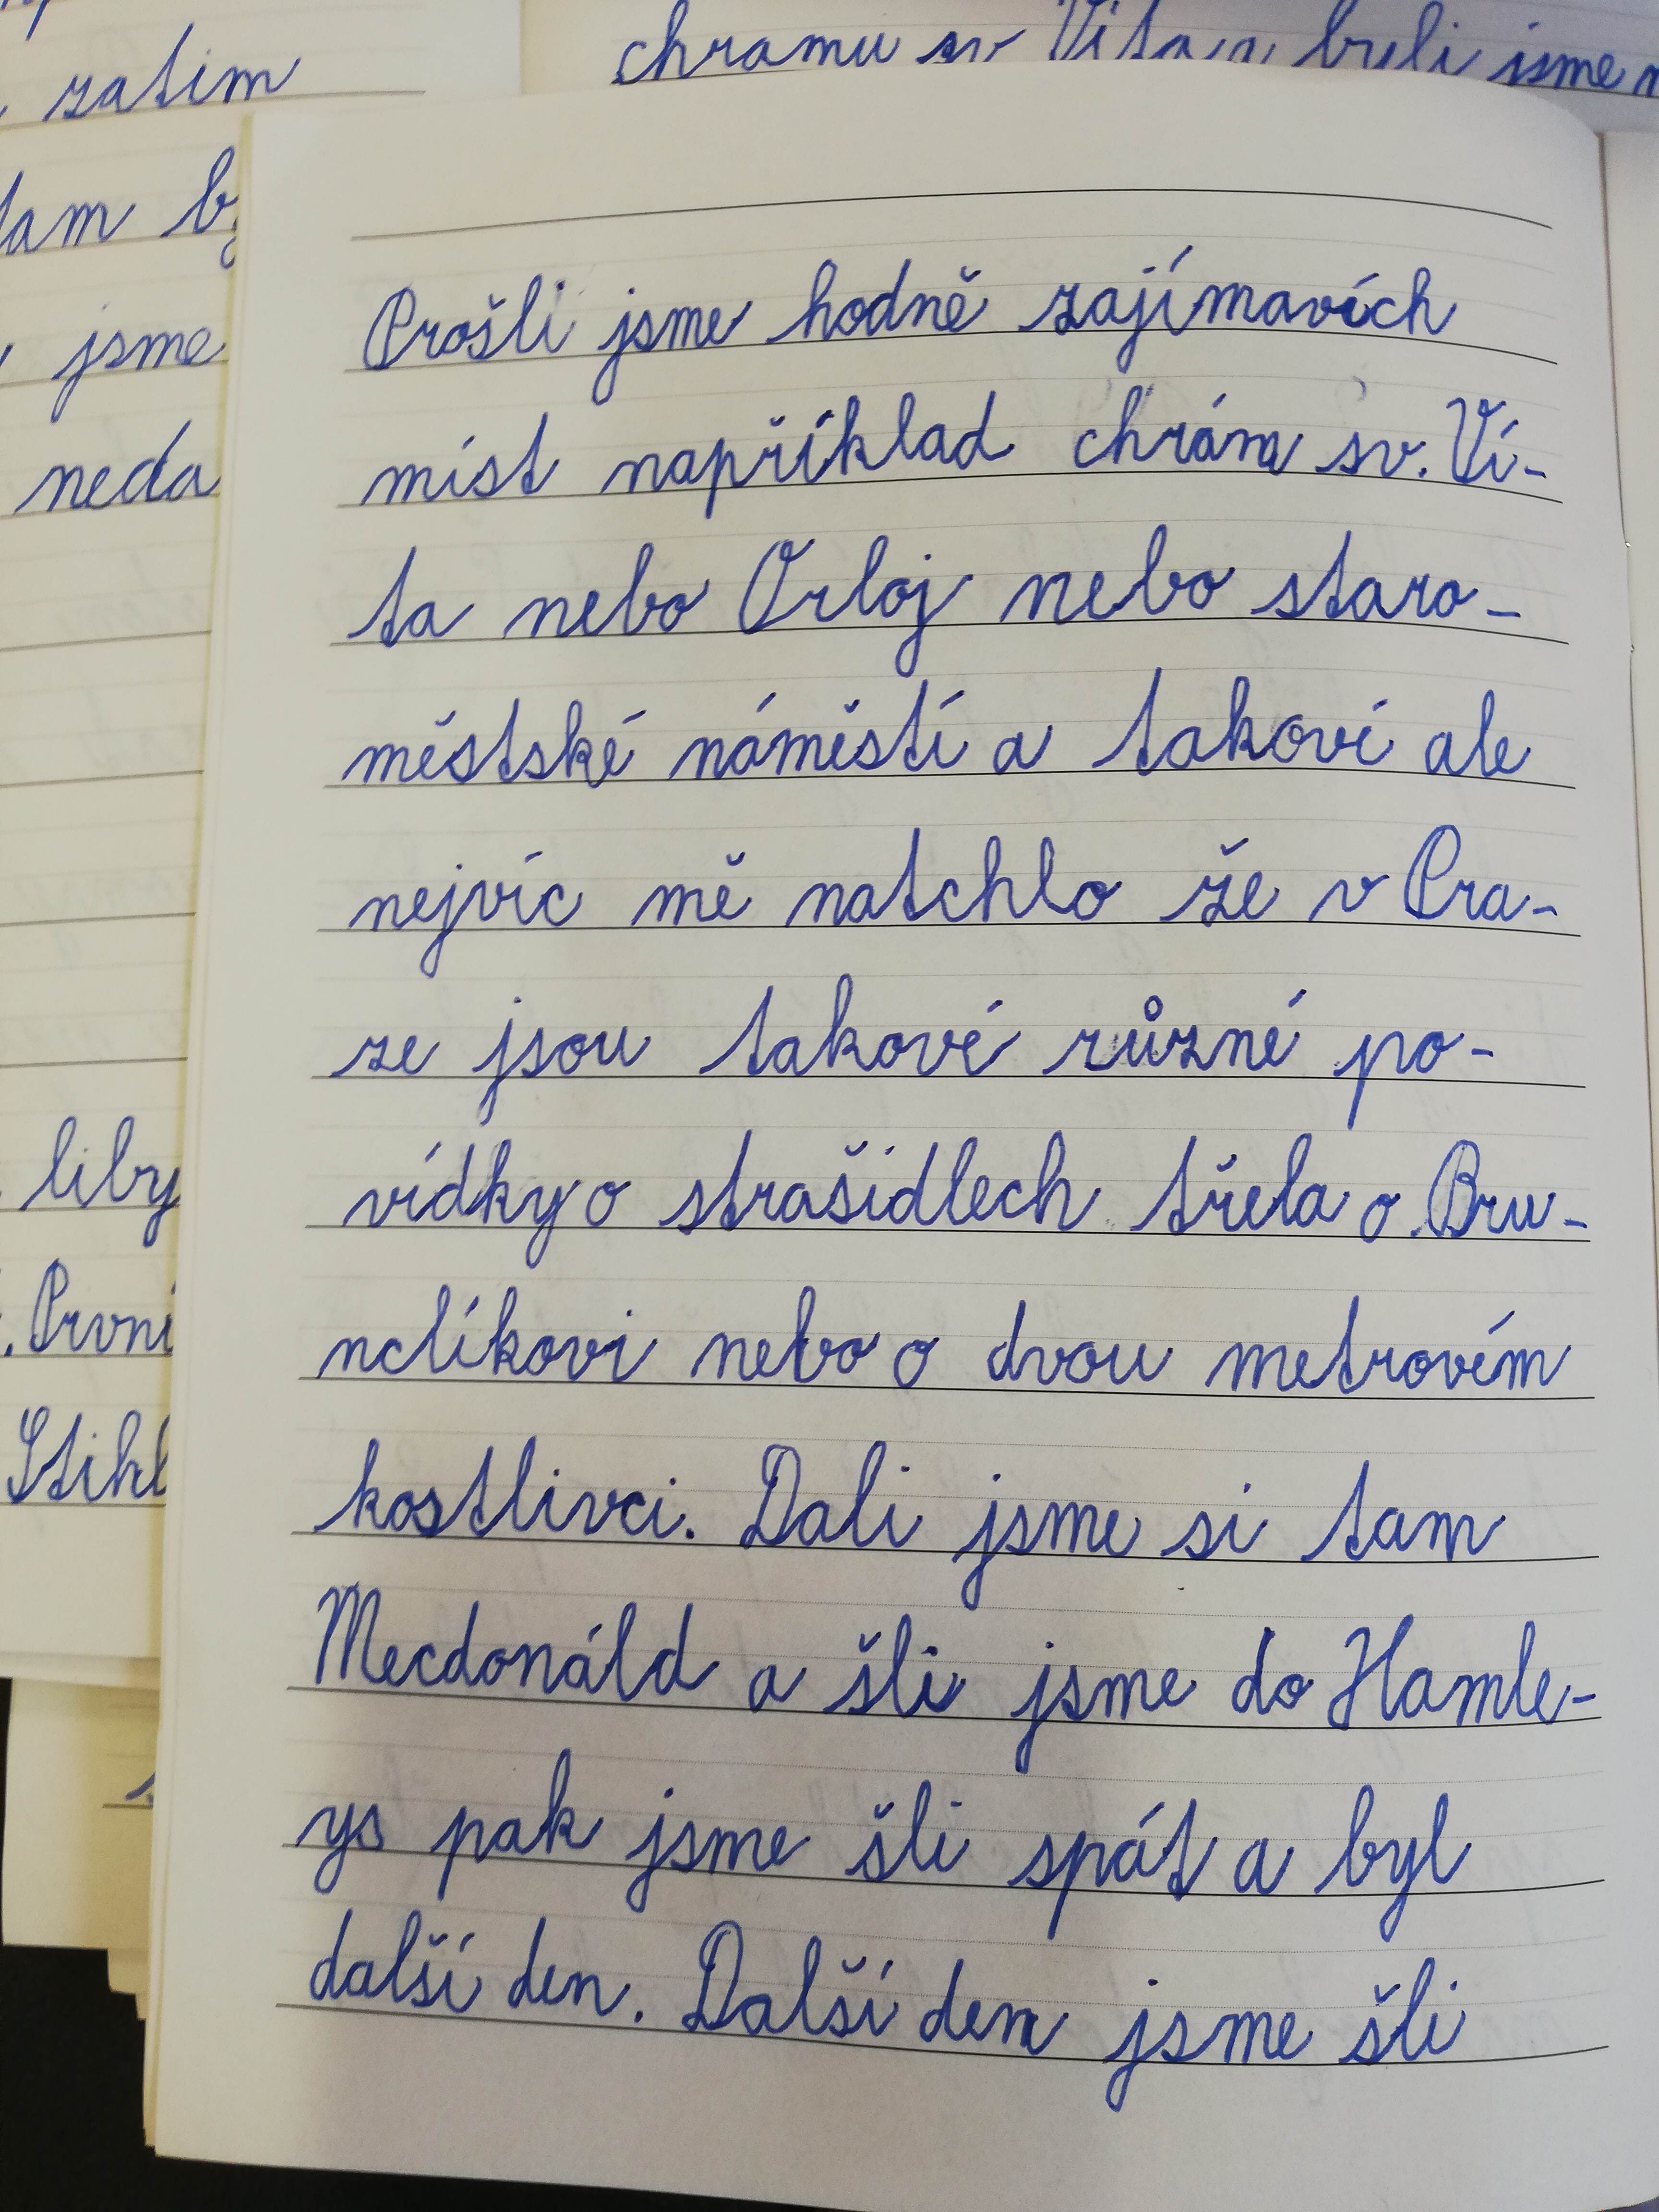 chramu sv Víta, byli jsme
zatim
tam
jsme
neda
liby
. První
Stihl
Prošli jsme hodně zajímavích
míst například chrám sv. Ví-
ta nebo Orloj nebo staro-
městské náměstí a takoví ale
nejvíc mě natchlo že v Pra-
ze jsou takové různé po-
vídky o strašidlech třela o Bru-
nclíkovi nebo o dvou metrovém
kostlivci. Dali jsme si tam
Mecdonáld a šli jsme do Hamle-
ys pak jsme šli spát a byl
další den. Další den jsme šli